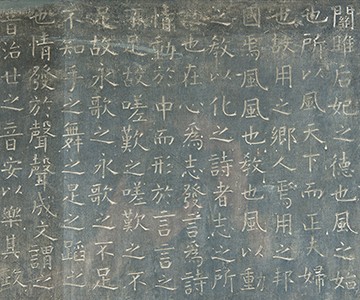 關雎后妃之德也風之始
也所以風天下而正夫婦
也故用之鄉人焉用之邦
國焉風風也教也風以動
之教以化之詩者志之所
之也在心為志發言為詩
情動於中而形於言言之
不足故嗟歎之嗟歎之不
足故永歌之永歌之不足
不知手之舞之足之蹈之
也情發於聲聲成文謂之
音治世之音安以樂其政